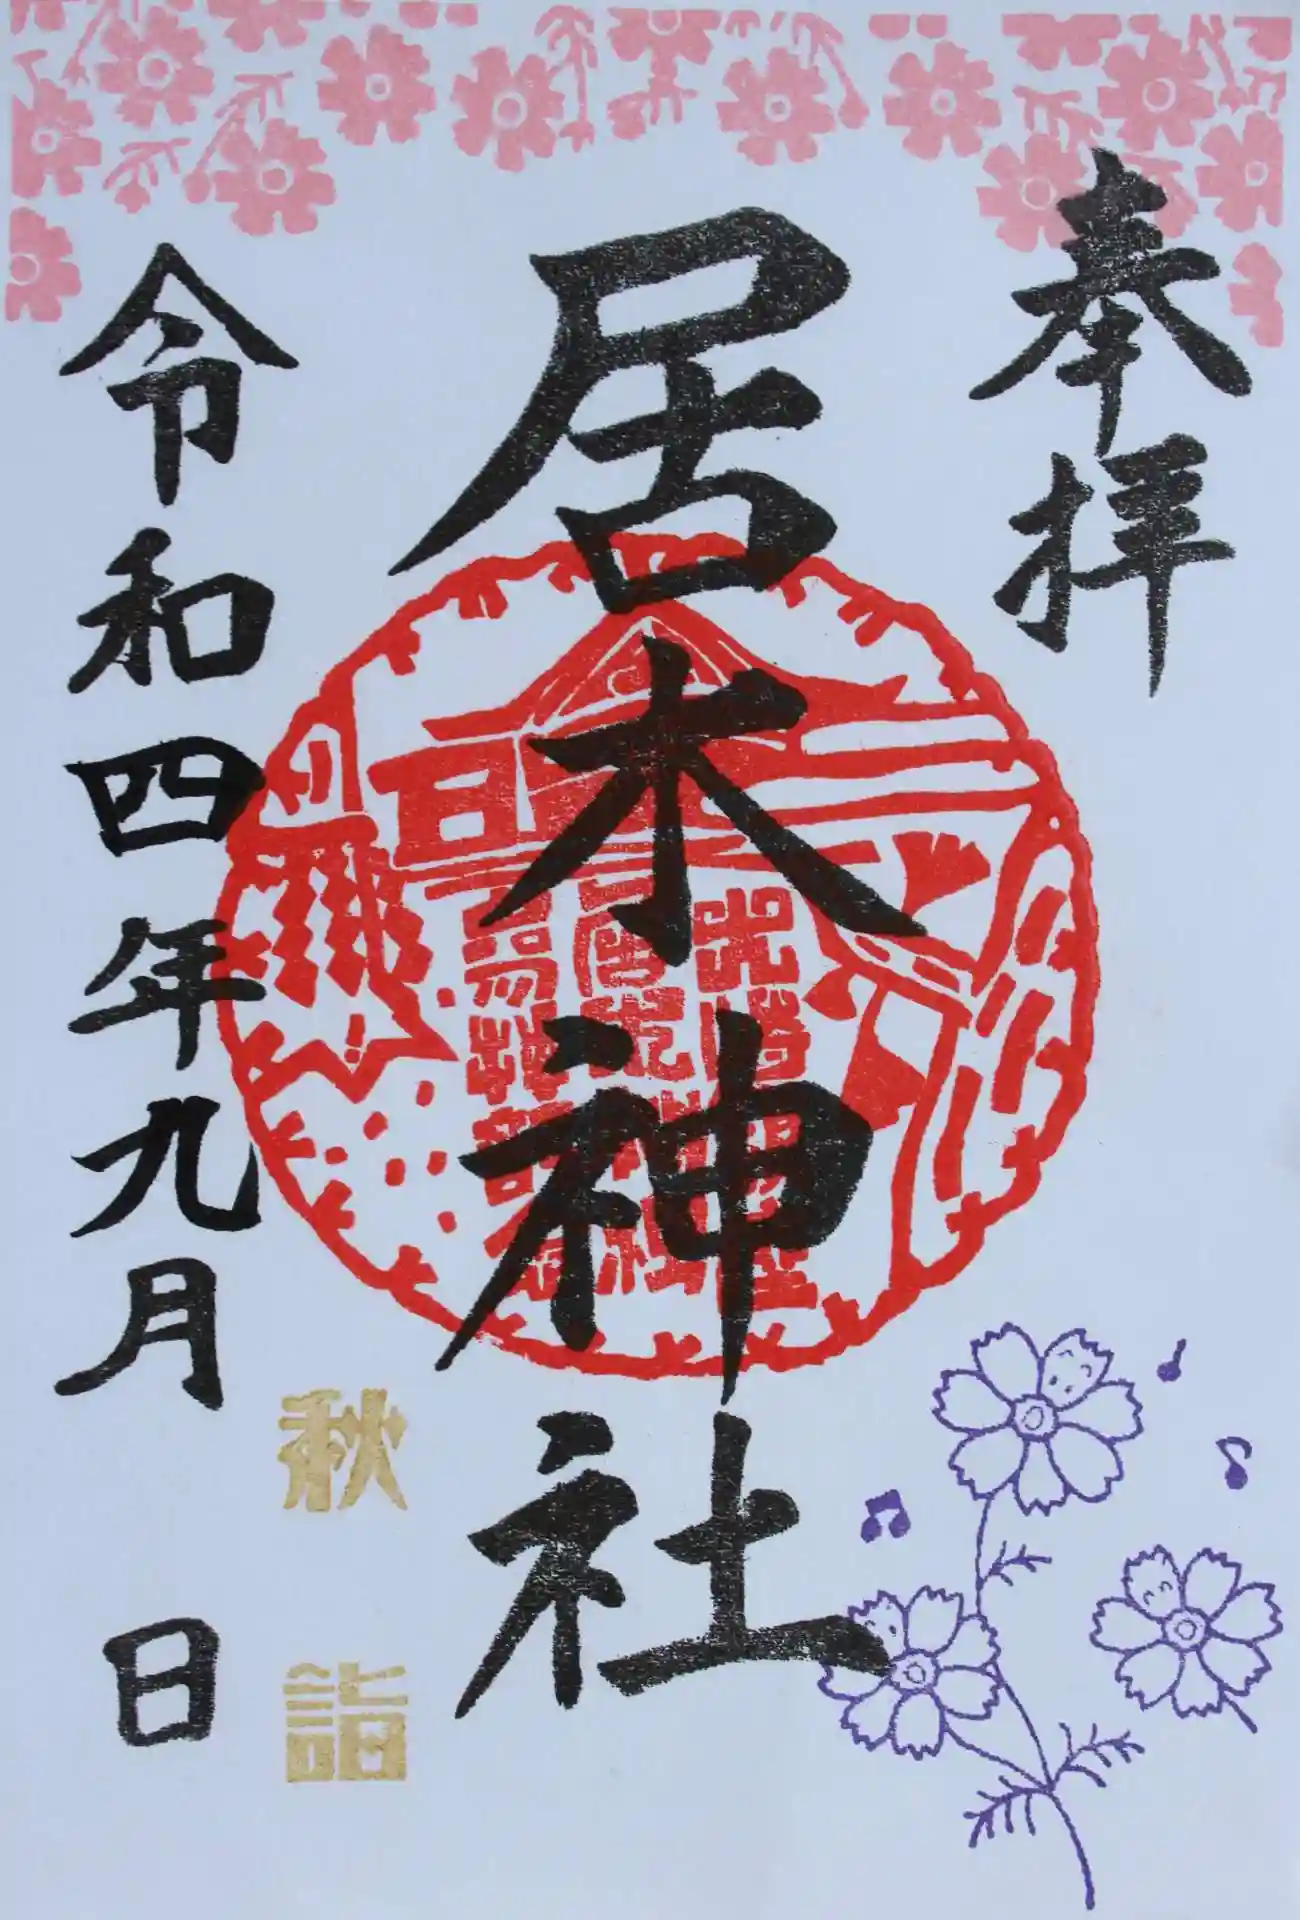 奉拝
居木神社
秋詣
令和四年九月 日